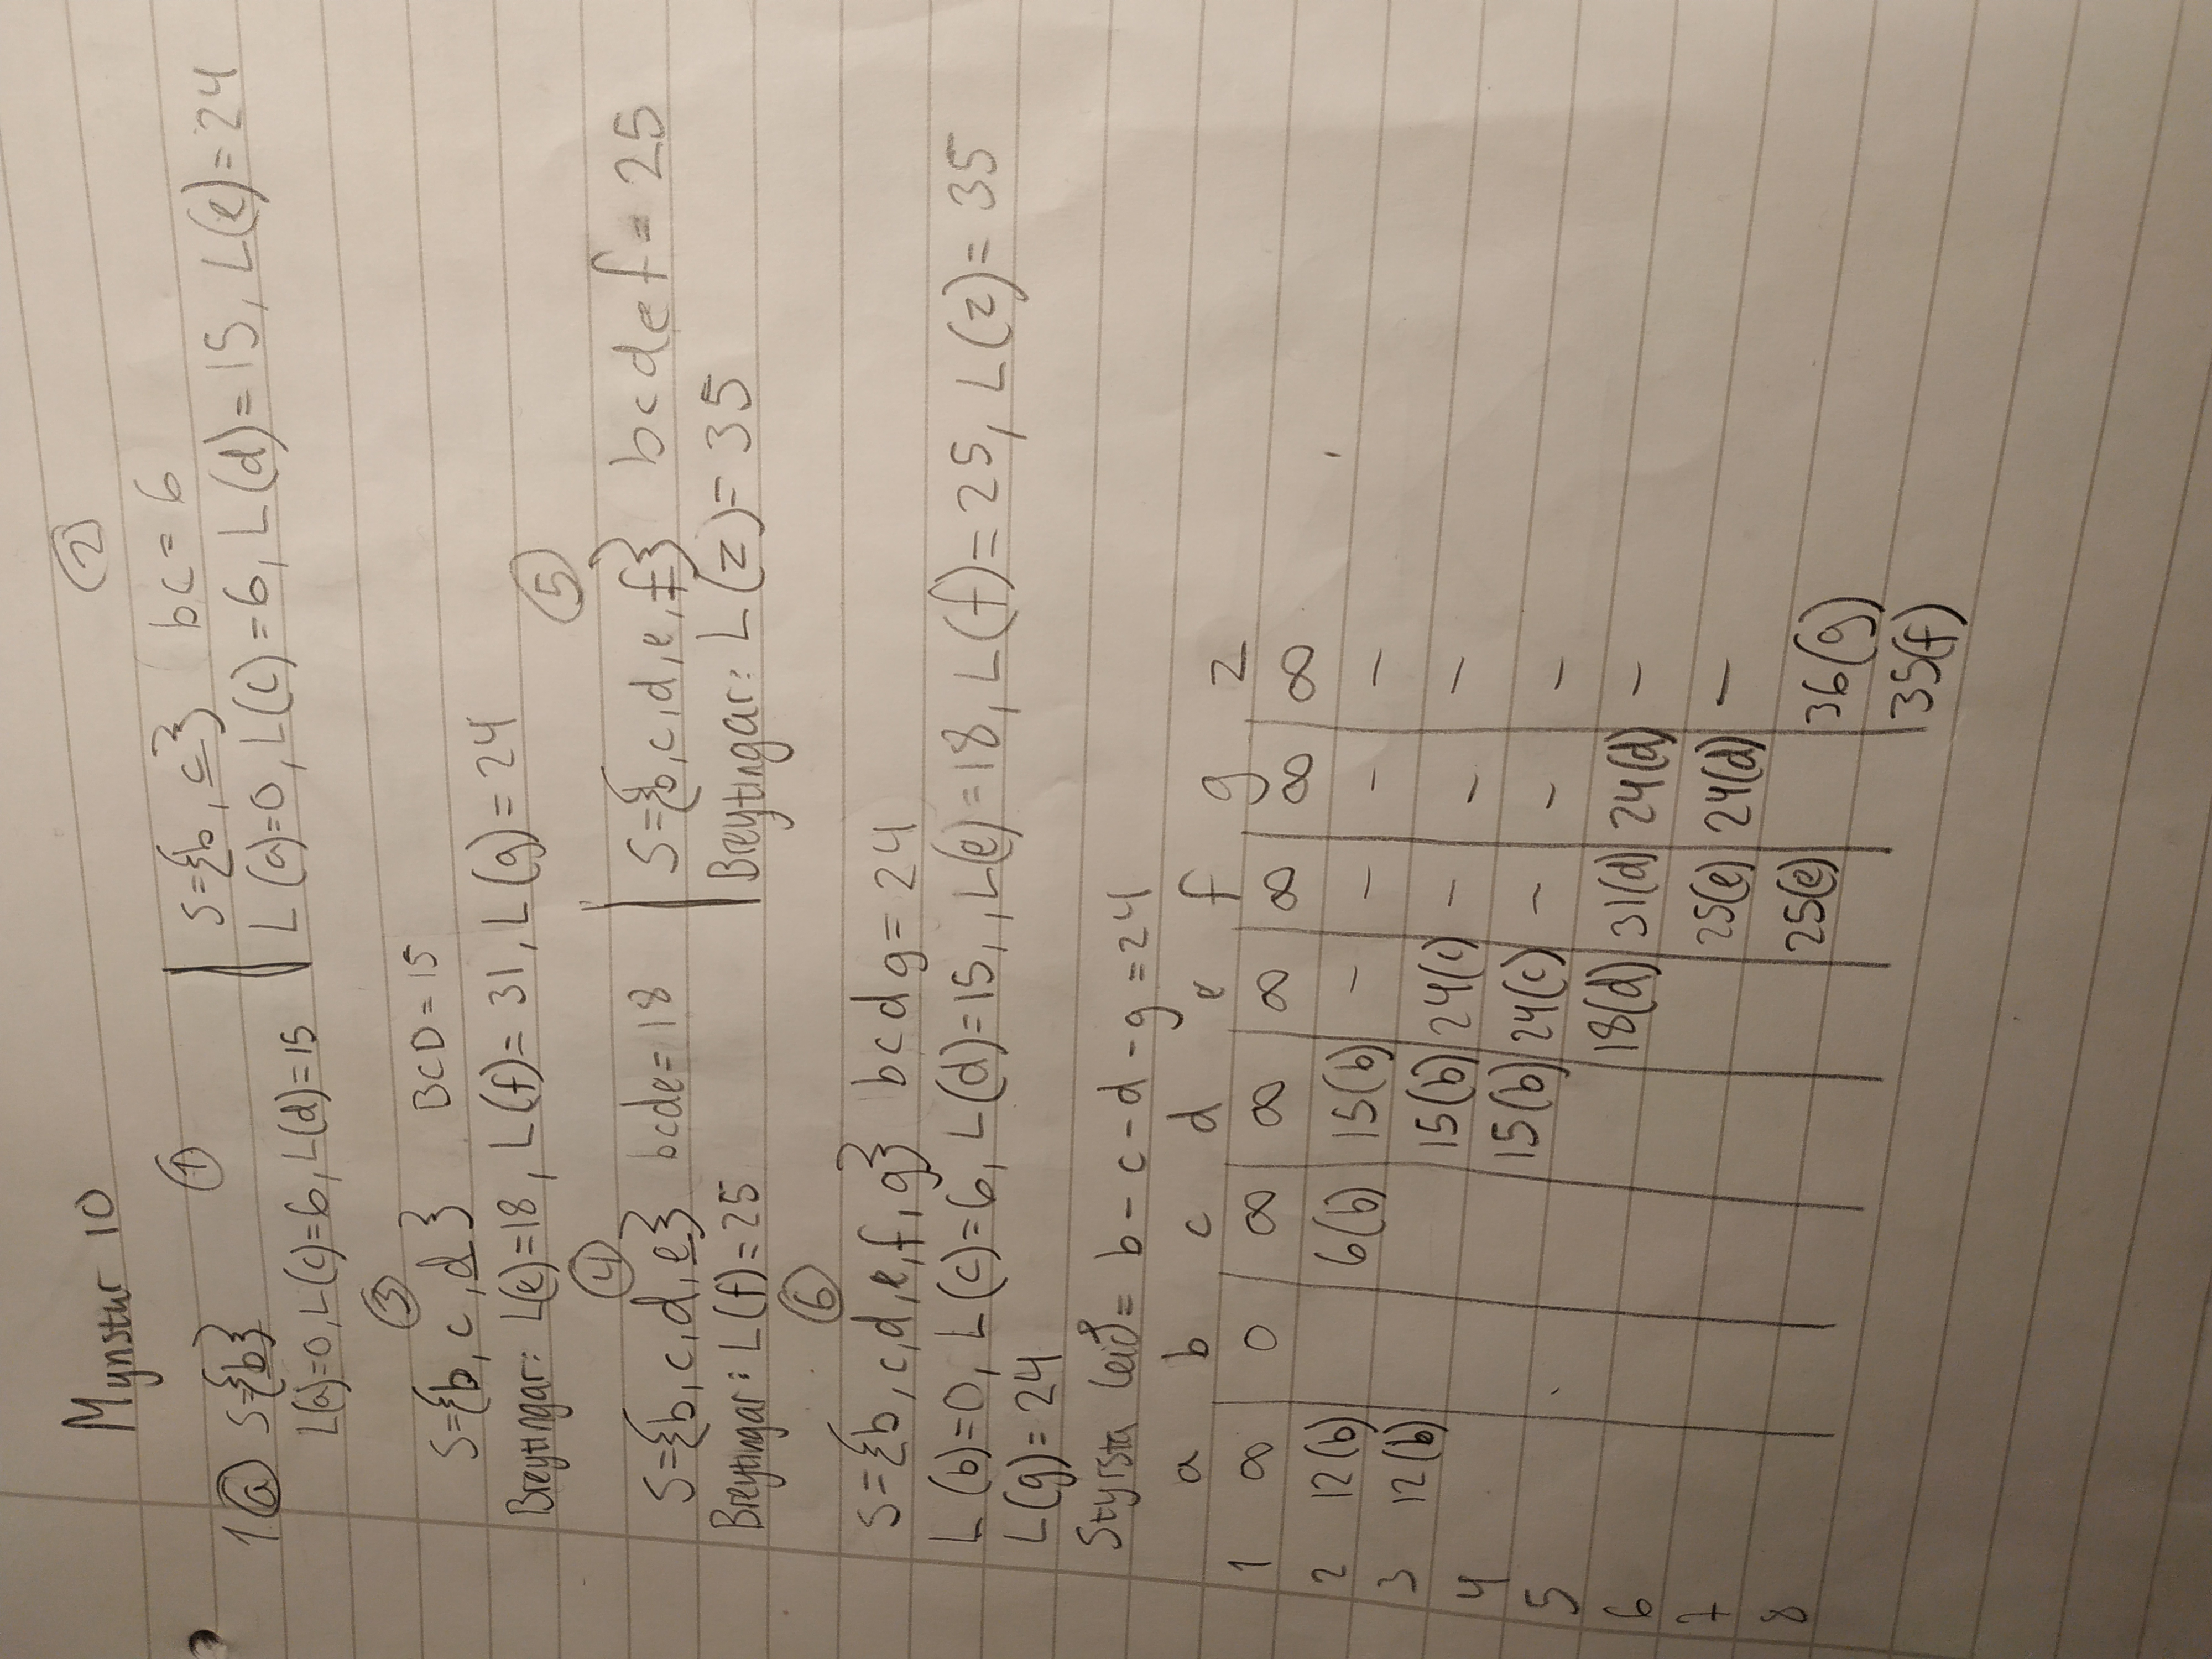 Mynstur 10
1 a S={b} ①
L(a)=0, L(c)=6, L(d)=15
②
S={b, c} bc=6
L(a)=0, L(c)=6, L(d)=15, L(e)=24
③
S={b, c, d} BCD=15
Breytingar: L(e)=18, L(f)=31, L(g)=24
④
S={b, c, d, e} bcde=18
Breytingar: L(f)=25
⑤
S={b, c, d, e, f} bcdef=25
Breytingar: L(z)=35
⑥
S={b, c, d, e, f, g} bcdg=24
L(b)=0, L(c)=6, L(d)=15, , L(e)=18, L(f)=25, L(z)=35
L(g)=24
Styrsta leið= b-c-d-g=24
a b c d e f g z
1 ∞ 0 ∞ ∞ ∞ ∞ ∞ ∞
2 12(b) 6(b) 15(b) - - - -
3 12(b) 15(b) 24(c) - - -
4 15(b) 24(c) - - -
5 18(d) 31(d) 24(d) -
6 25(e) 24(d) -
7 25(e) 36(g)
8 35(f)